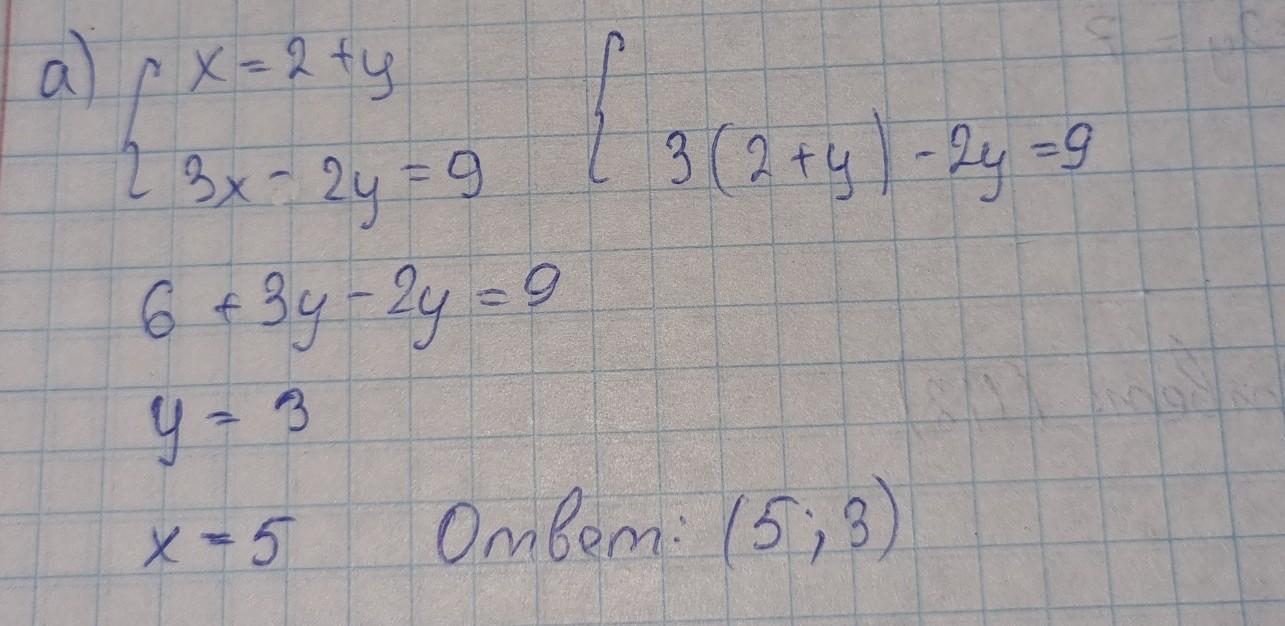 а) { x = 2 + y {
3x - 2y = 9 3(2 + y) - 2y = 9
6 + 3y - 2y = 9
y = 3
x = 5 Ответ: (5; 3)